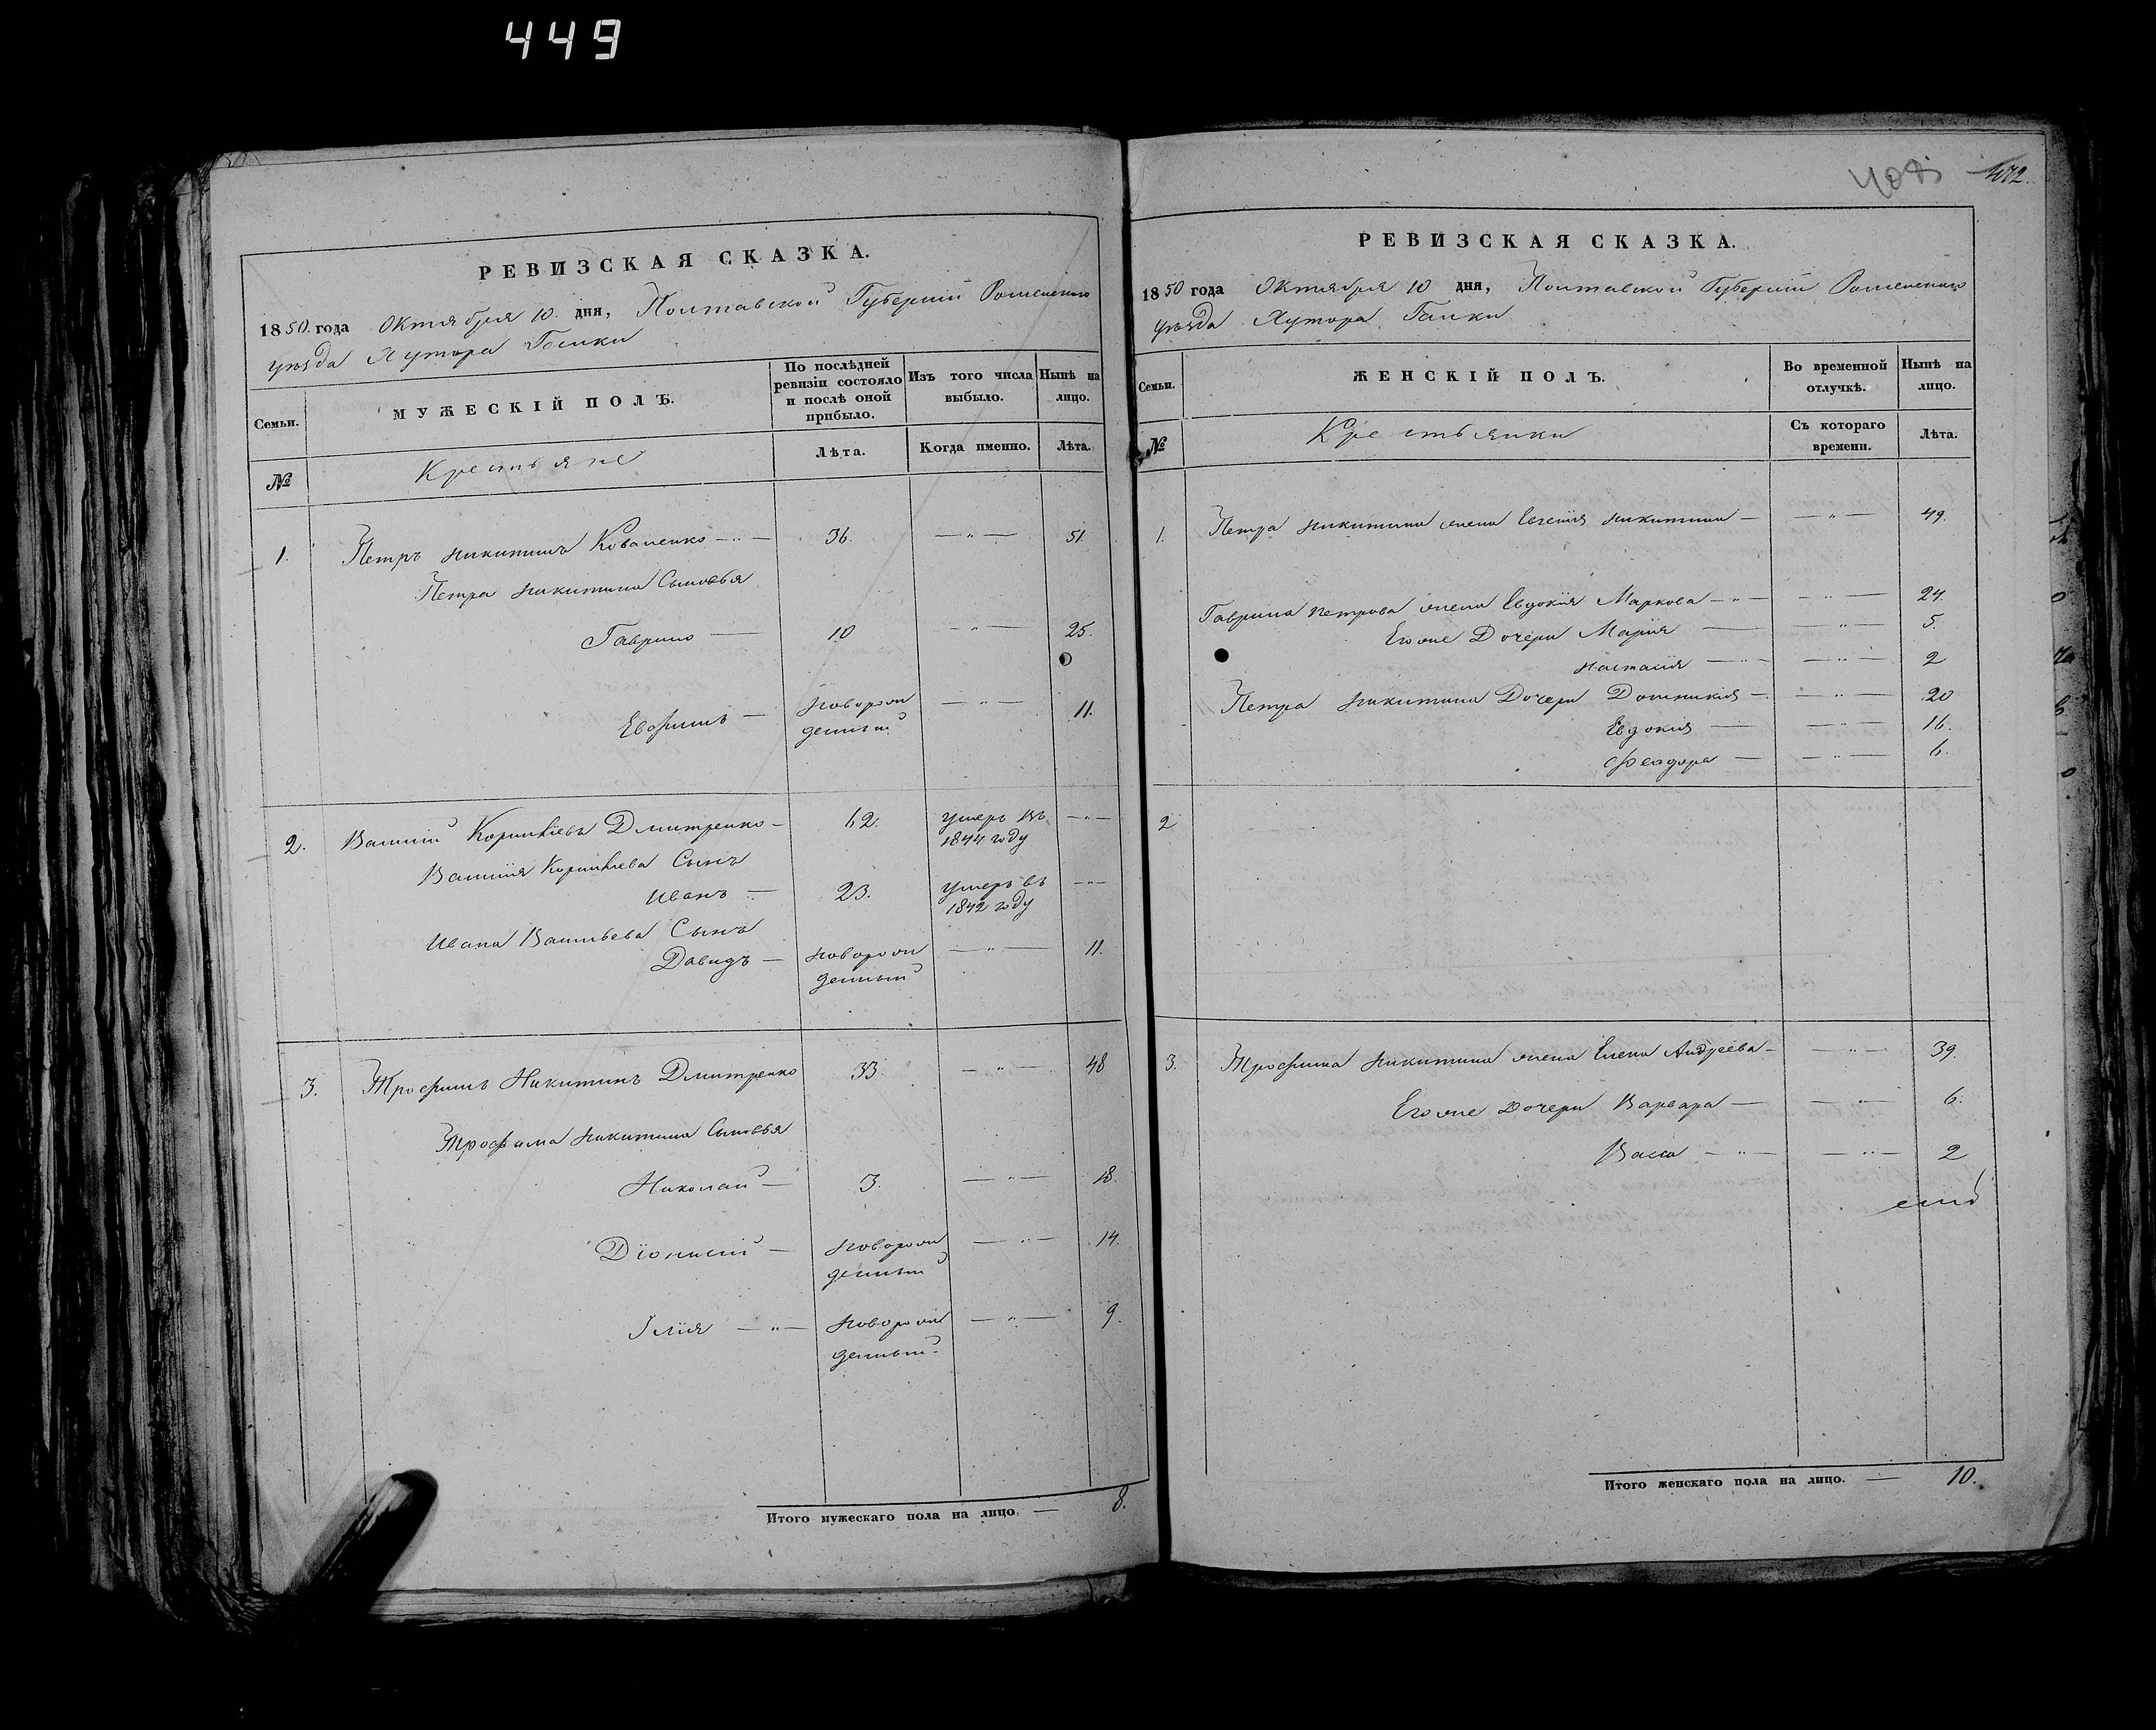 449
РЕВИЗСКАЯ СКАЗКА.
1850. года Октября 10. дня, Полтавской Губерніи Роменского
уѣзда Хутора Галки
Семьи.
МУЖЕСКІЙ ПОЛЪ.
По послѣдней ревизіи состояло и послѣ оной прибыло.
Изъ того числа выбыло.
Нынѣ на лицо.
№
Крестьяне
Лѣта.
Когда именно.
Лѣта.
1. Петръ Никитинъ Коваленко — 36. — " — 51.
Петра Никитина Сыновья
Гаврило — 10 — " — 25.
Евфимъ — новорож — " — 11.
денный
2. Василій Корнѣевъ Дмитренко — 62. умеръ въ — " —
1844 году
Василія Корнѣева Сынъ
Иванъ — 23. умеръ въ — " —
1842 году
Ивана Васильева Сынъ
Давидъ — новорож — " — 11.
денный
3. Трофимъ Никитинъ Дмитренко 33. — " — 48
Трофима Никитина Сыновья
Николай — 3. — " — 18.
Діонисій — новорож — " — 14.
денный
Илія — " — новорож — " — 9.
денный.
Итого мужескаго пола на лицо. — 8.
472.
РЕВИЗСКАЯ СКАЗКА.
1850 года Октября 10 дня, Полтавской Губерніи Роменского
уѣзда Хутора Галки
Семьи.
ЖЕНСКІЙ ПОЛЪ.
Во временной отлучкѣ.
Нынѣ на лицо.
№
Крестьянки
Съ котораго времени.
Лѣта.
1. Петра Никитина жена Евгенія Никитина — — " — 49.
Гаврила Петрова жена Евдокія Маркова — " — — " — 24.
Его же Дочери Марія — — " — 5.
Настасія — " — — " — 2
Петра Никитина Дочери Домникія — — " — 20
Евдокія — — " — 16.
Феодора — — " — 6.
2
3. Трофима Никитина жена Елена Андреева — — " — 39.
Его же Дочери Варвара — — " — 6.
Васса — " — — " — 2
Итого женскаго пола на лицо. — 10.